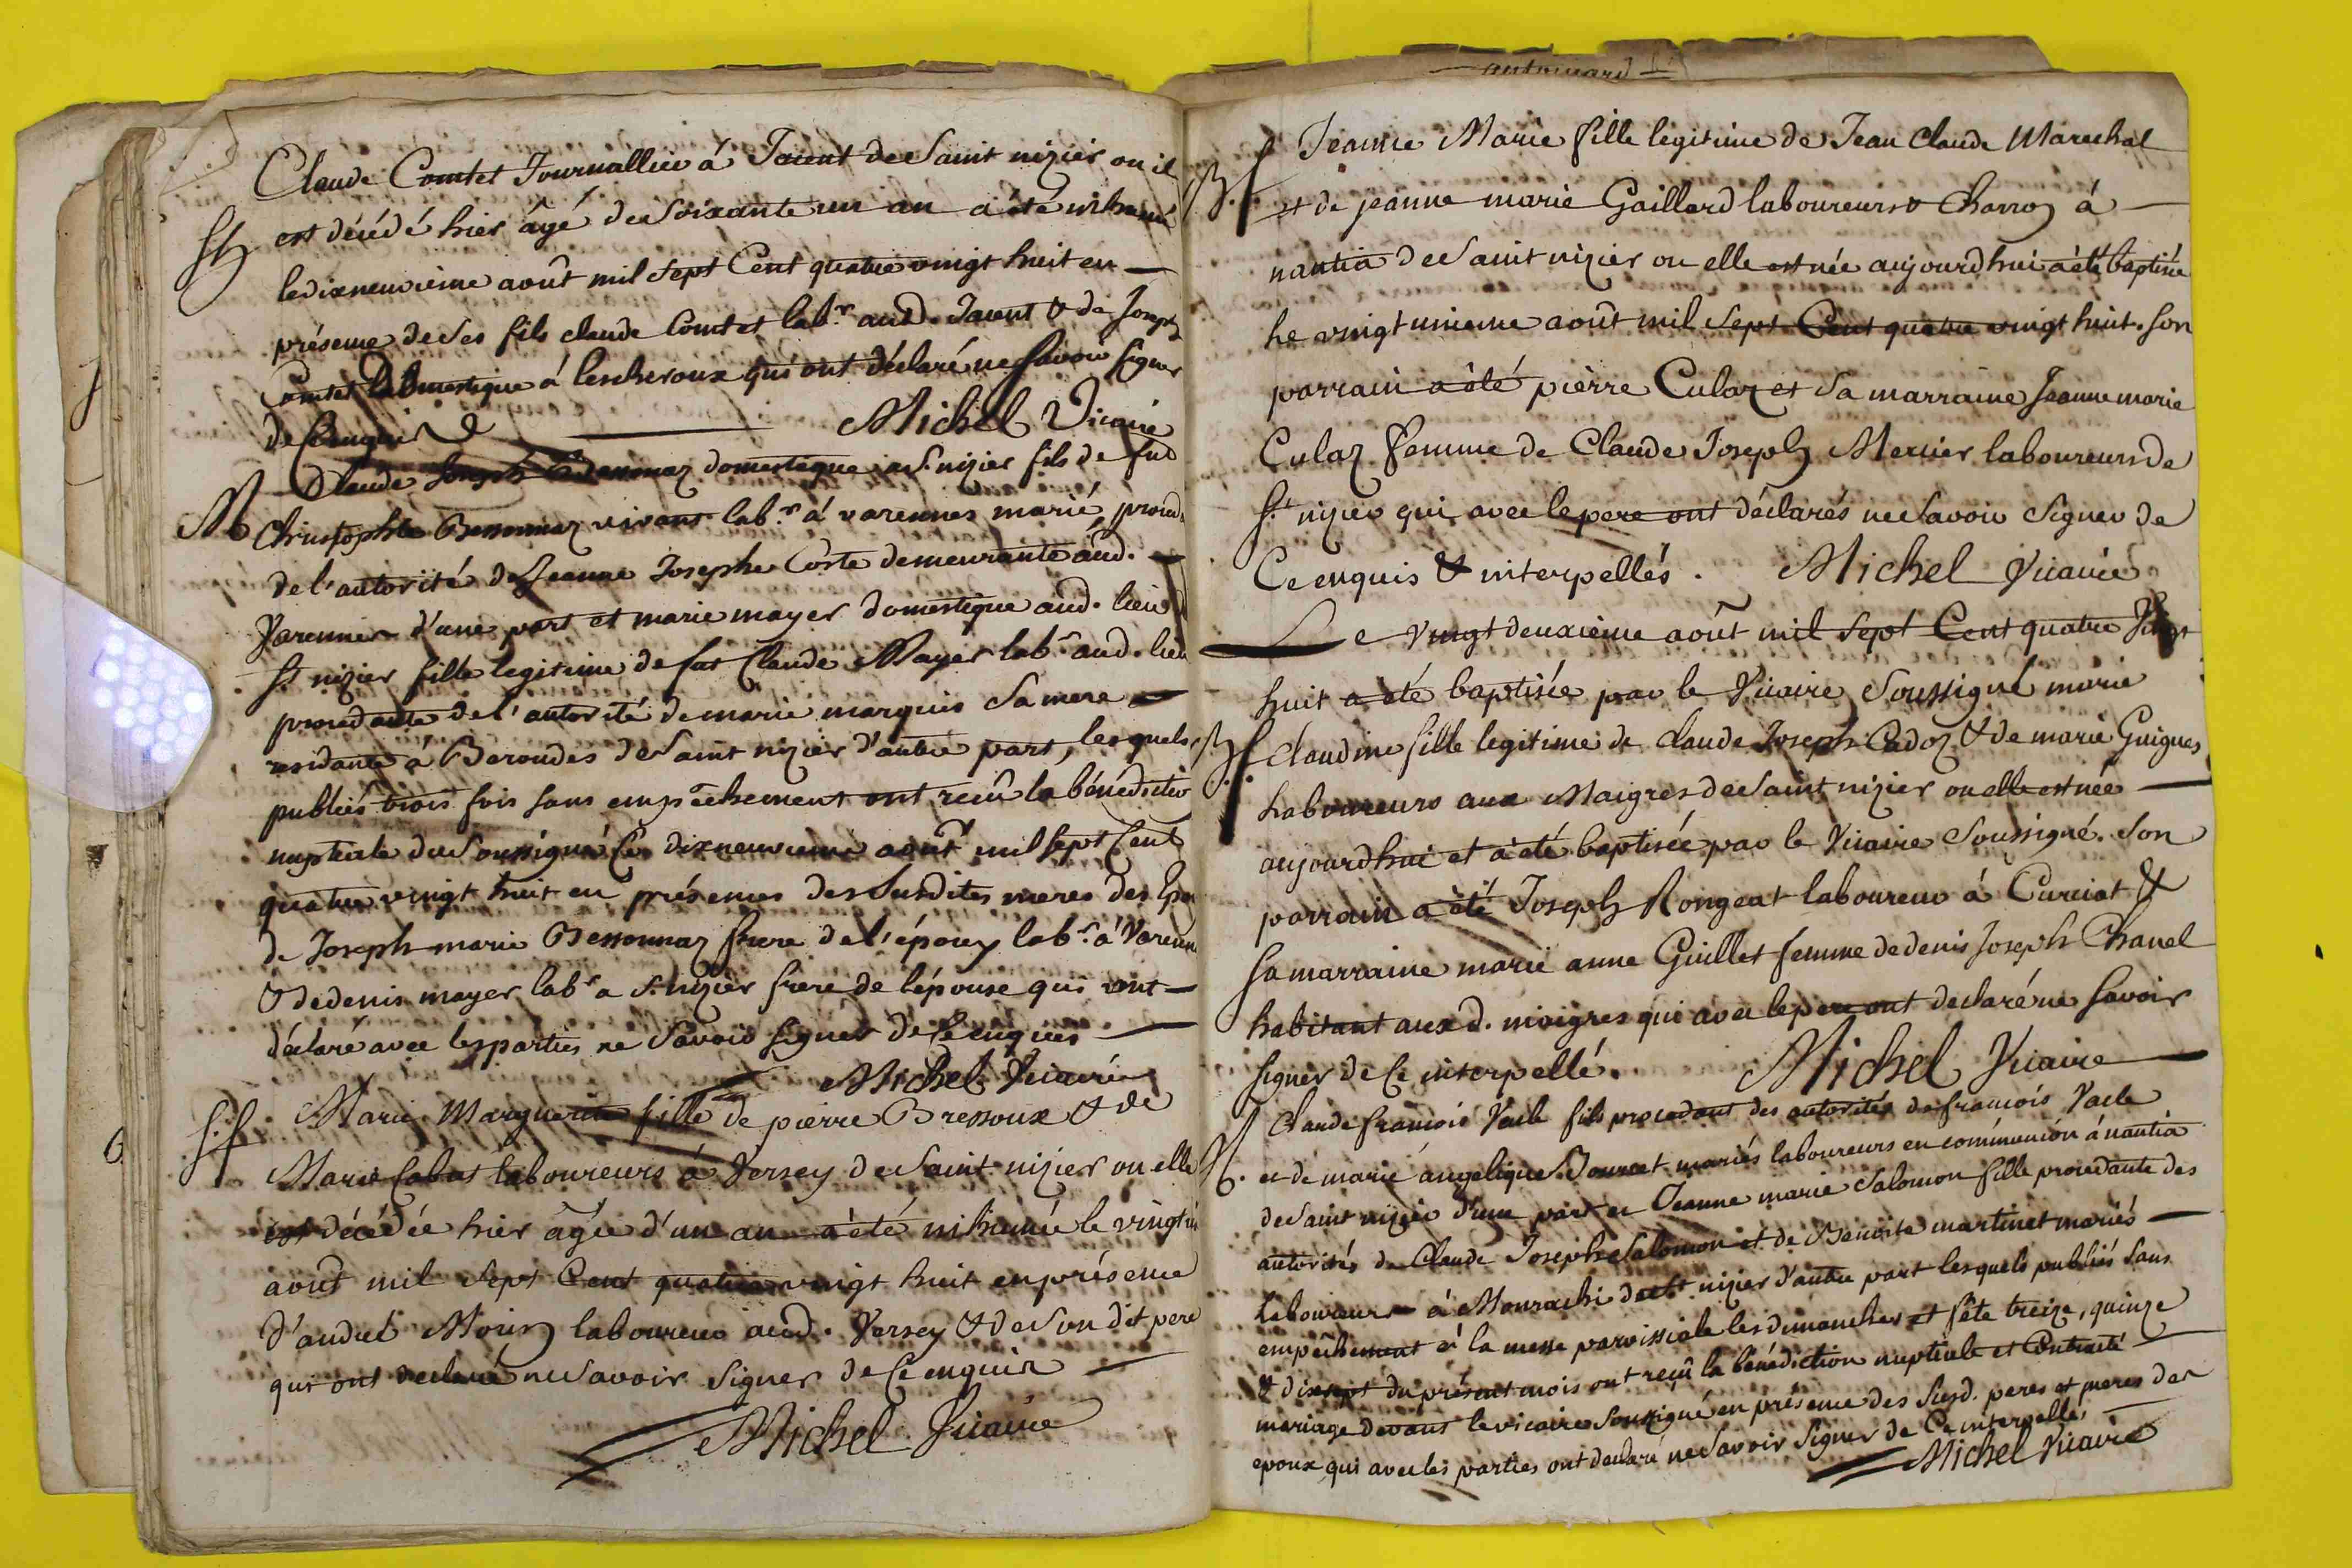 Claude Comtet Journallier á Tarent de Saint nizier ou il
est décédé hier âgé de Soixante un an a été inhumé
le dixneuvieme août mil Sept Cent quatre vingt huit en
présence de Ses fils claude Comtet lab.r aud. Tarent & de Joseph
Comtet domestique á lescheroux qui ont déclaré ne Savoir Signer
de Ce enquis
Michel Vicaire
Claude Joseph Bessonnaz domestique a St. nizier fils de feu
Christophle Bessonnaz vivant lab.r á varennes marié, proced.
de l'autorité de Jeanne Josephe Coste demeurante aud.
Varennes d'une part et marie mayer domestique aud. lieu
St nizier fille legitime de feu Claude Mayer lab.r aud. lieu
procedante de l'autorité de marie marquis Sa mere
residante á Beroudes de Saint nizier d'autre part, lesquels
publiés trois fois sans empêchement ont reçû la bénédiction
nuptiale du Soussigné Ce dixneuvieme août mil Sept Cent
quatre vingt huit en présence des Susdites meres des
de Joseph marie Bessonnaz frere de l'époux lab.r a Varenn
& de denis mayer lab.r a St. nizier frere de l'épouse qui ont
déclaré avec les parties ne Savoir Signer de Ce enquis
Michel Vicaire
Marie Marguerite fille de pierre Bressoux & de
Marie Cabut laboureurs á Versey de Saint nizier ou elle
est décédée hier âgée d'un an a été inhumée le vingt
août mil Sept Cent quatre vingt huit en présence
d'andré Morin laboureur aud. Versey & de Son dit pere
qui ont declaré ne Savoir Signer de Ce enquis
Michel Vicaire
Jeanne Marie fille legitime de Jean Claude Marechal
et de jeanne marie Gaillard laboureurs & Charron á
nantia de Saint nizier ou elle est née aujourdhui a été baptisée
le vingt unieme août mil Sept Cent quatre vingt huit. Son
parrain a été pièrre Culaz et Sa marraine Jeanne marie
Culaz femme de Claude Joseph Mercier laboureurs de
St. nizier qui avec le pere ont déclarés ne Savoir Signer de
Ce enquis & interpellés. Michel Vicaire
Le vingt deuxième août mil Sept Cent quatre Vingt
huit a été baptisée par le Vicaire Soussigné marie
Claudine fille legitime de claude Joseph Cadoz & de marie Guigues
laboureurs aux Maigres de Saint nizier ou elle est née
aujourdhui et a été baptisée par le Vicaire Soussigné. Son
parrain a été Joseph Rongeat laboureur á Curciat &
Sa marraine marie anne Guillet femme de denis Joseph Chanel
habitant aux d. maigres qui avec le pere ont declaré ne Savoir
Signer de Ce interpellé. Michel Vicaire
Claude françois Vacle fils procedant des autorités de françois Vacle
et de marie angelique Doucet mariés laboureurs en communion á nantia
de Saint nizier d'une part et Jeanne marie Salomon fille procedante des
autorités de Claude Joseph Salomon et de Benoite martinet mariés
laboureurs á Mourachi de St. nizier d'autre part lesquels publiés Sans
empêchement á la messe paroissiale les dimanches et fête treize, quinze
& dixsept du présent mois ont reçû la bénédiction nuptiale et Contracté
mariage devant le vicaire Soussigné en présence des Susd. peres et meres des
epoux qui avec les parties ont declaré ne Savoir Signer de Ce interpellés
Michel Vicaire